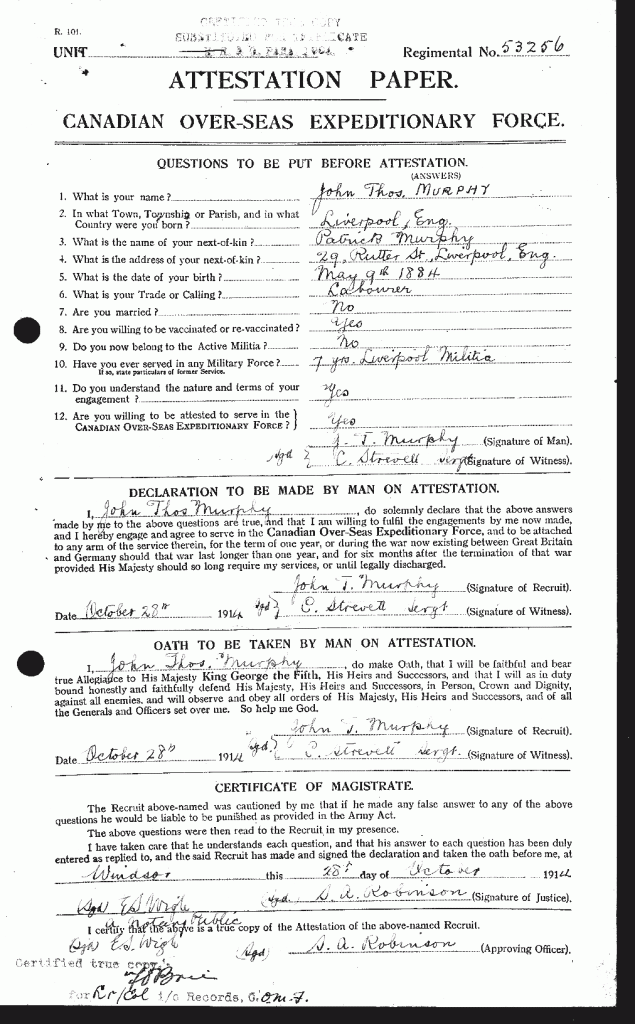 R. 101.
CERTIFIED TRUE COPY
SUBSTITUTED FOR
UNIT
Regimental No. 53256
ATTESTATION PAPER.
CANADIAN OVER-SEAS EXPEDITIONARY FORCE.
QUESTIONS TO BE PUT BEFORE ATTESTATION.
(ANSWERS)
1. What is your name? John Thos. MURPHY
2. In what Town, Township or Parish, and in what Country were you born? Liverpool, Eng.
3. What is the name of your next-of-kin? Patrick Murphy
4. What is the address of your next-of-kin? 29, Rutter St, Liverpool, Eng.
5. What is the date of your birth? May 9th 1884
6. What is your Trade or Calling? Labourer
7. Are you married? No
8. Are you willing to be vaccinated or re-vaccinated? Yes
9. Do you now belong to the Active Militia? No
10. Have you ever served in any Military Force? 7 yrs. Liverpool Militia
If so, state particulars of former Service.
11. Do you understand the nature and terms of your engagement? Yes
12. Are you willing to be attested to serve in the CANADIAN OVER-SEAS EXPEDITIONARY FORCE? } Yes
J. T. Murphy (Signature of Man).
Sgd } C. Strevett sergt (Signature of Witness).
DECLARATION TO BE MADE BY MAN ON ATTESTATION.
I, John Thos Murphy, do solemnly declare that the above answers
made by me to the above questions are true, and that I am willing to fulfil the engagements by me now made,
and I hereby engage and agree to serve in the Canadian Over-Seas Expeditionary Force, and to be attached
to any arm of the service therein, for the term of one year, or during the war now existing between Great Britain
and Germany should that war last longer than one year, and for six months after the termination of that war
provided His Majesty should so long require my services, or until legally discharged.
John T. Murphy (Signature of Recruit).
Date October 28th 1914 Sgd } C. Strevett Sergt (Signature of Witness).
OATH TO BE TAKEN BY MAN ON ATTESTATION.
I, John Thos. Murphy, do make Oath, that I will be faithful and bear
true Allegiance to His Majesty King George the Fifth, His Heirs and Successors, and that I will as in duty
bound honestly and faithfully defend His Majesty, His Heirs and Successors, in Person, Crown and Dignity,
against all enemies, and will observe and obey all orders of His Majesty, His Heirs and Successors, and of all
the Generals and Officers set over me. So help me God.
John T. Murphy (Signature of Recruit).
Date October 28th 1914 Sgd. } C. Strevett Sergt. (Signature of Witness).
CERTIFICATE OF MAGISTRATE.
The Recruit above-named was cautioned by me that if he made any false answer to any of the above
questions he would be liable to be punished as provided in the Army Act.
The above questions were then read to the Recruit in my presence.
I have taken care that he understands each question, and that his answer to each question has been duly
entered as replied to, and the said Recruit has made and signed the declaration and taken the oath before me, at
Windsor this 28th day of October 1914
Sgd E.S. Wigle Sgd. S. A. Robinson (Signature of Justice).
a Notary Public
I certify that the above is a true copy of the Attestation of the above-named Recruit.
Sgd E.S. Wigle (Sgd) S. A. Robinson (Approving Officer).
Certified true copy
for Lr/Col i/c Records, C.O.M.F.